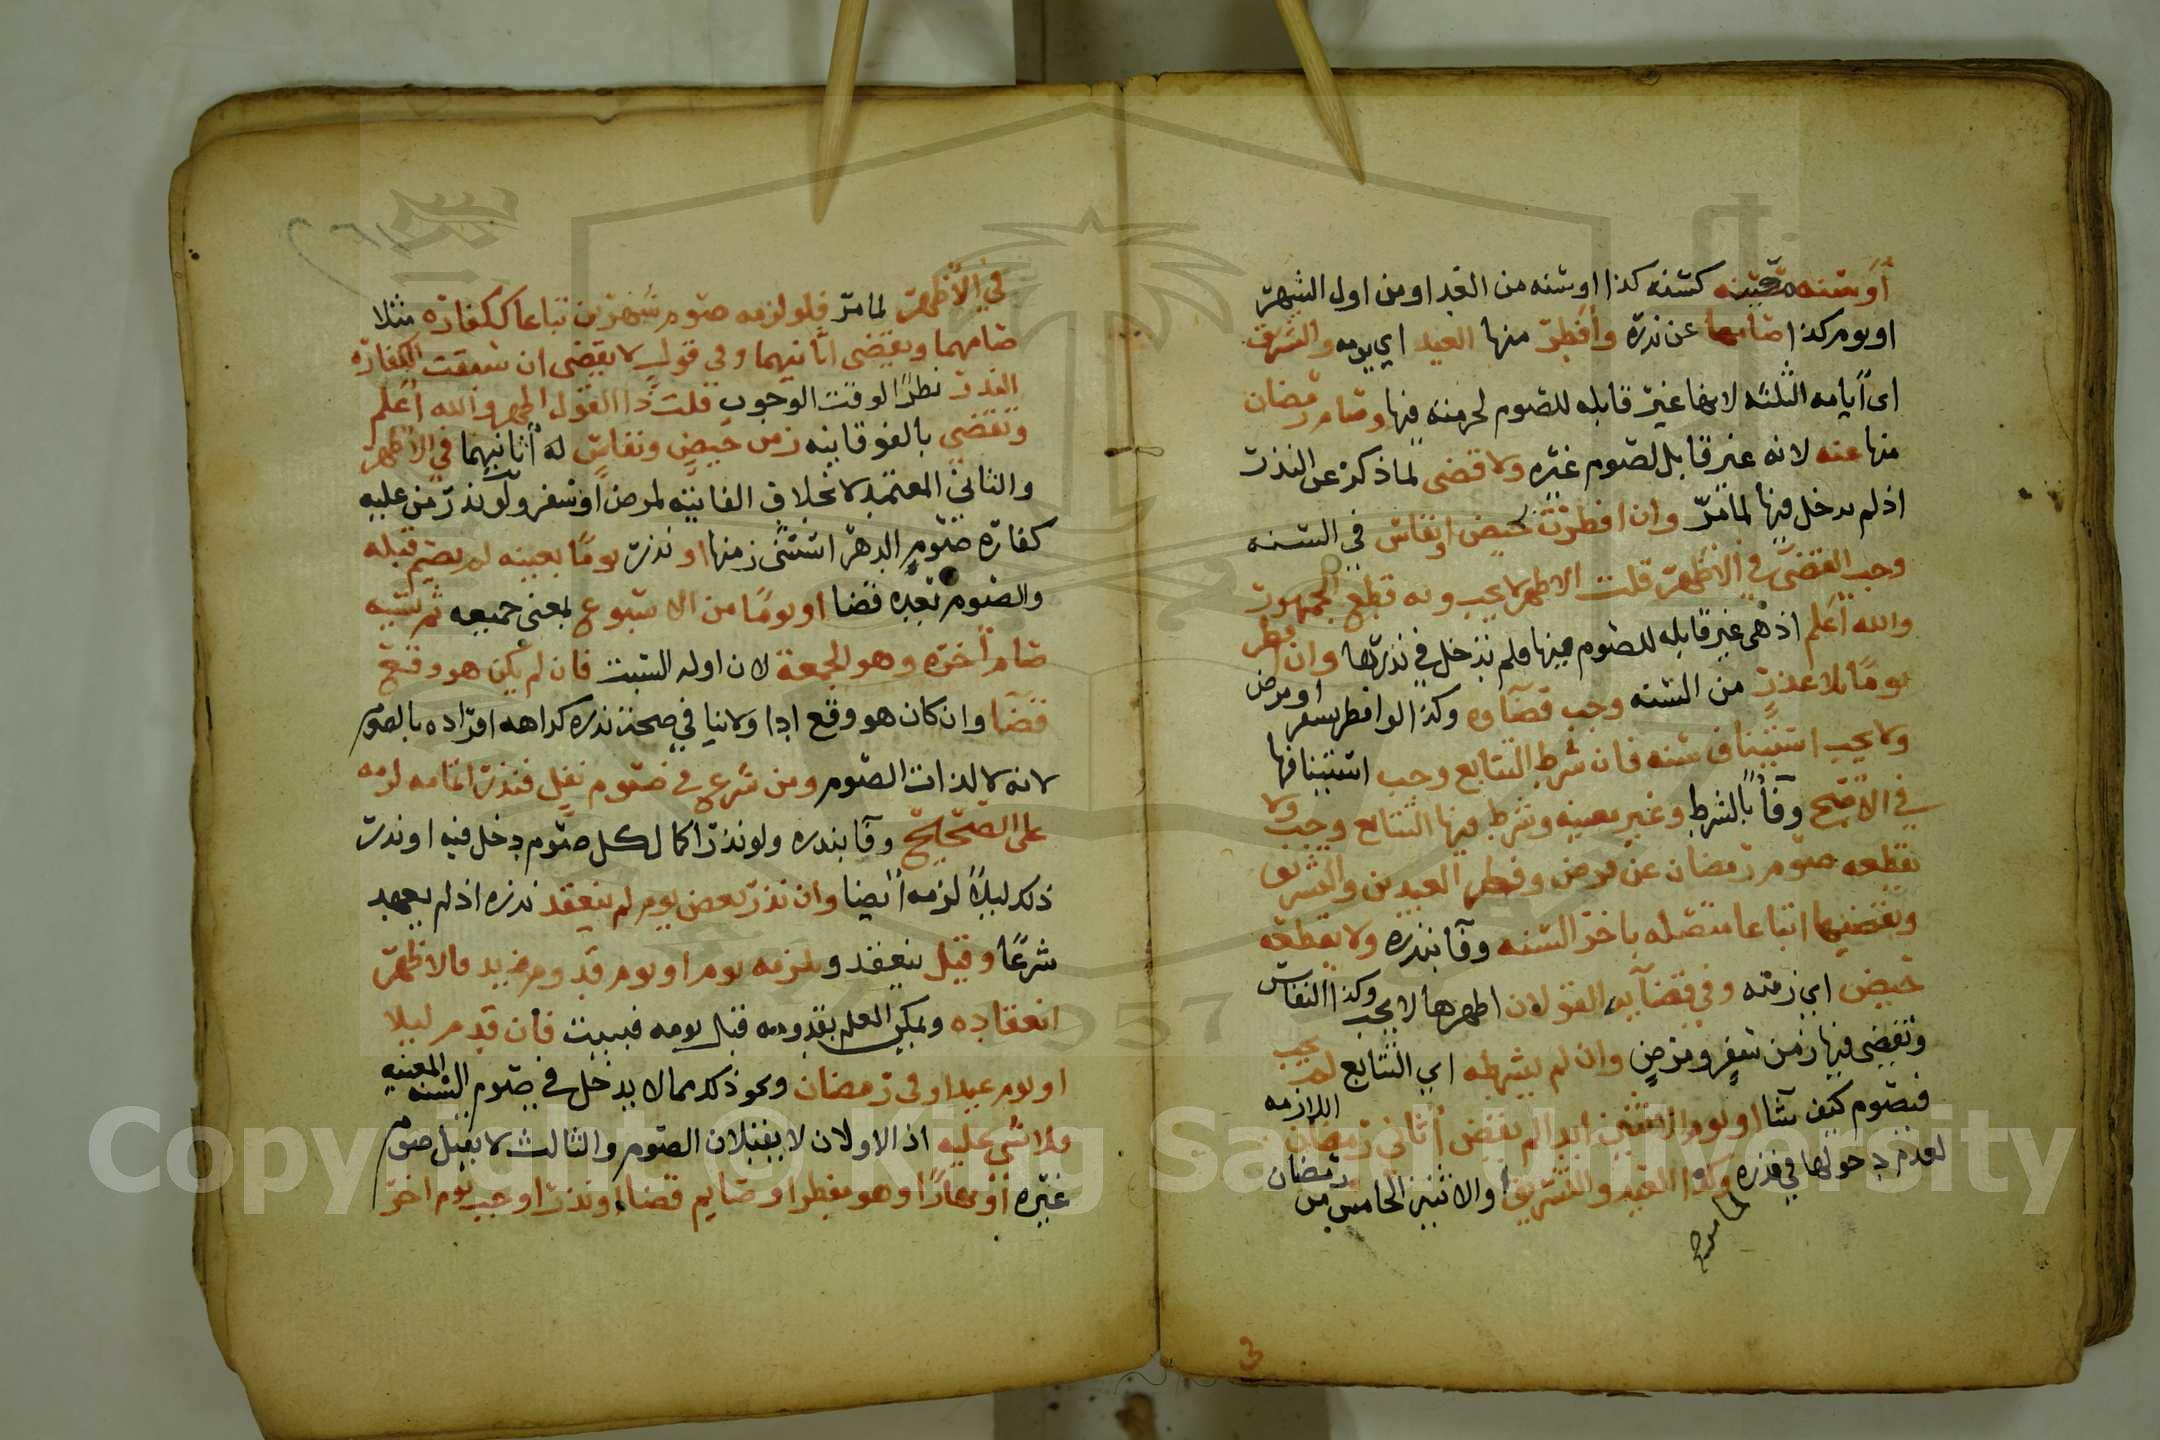 أو سنه معينه كسنه كذا او سنه من الغد او من اول الشهر
او يوم كذا صامها عن نذره وأفطر منها العيد اي يومه والتشريق
اى أيامه الثلثه لانها غير قابله للصوم لحرمته فيها وصام رمضان
منها عنه لانه غير قابل لصوم غيره ولا قضى لما ذكر عن النذر
اذ لم يدخل فيها لما مر وان افطرت بحيض او نفاس في السنه
وجب القضى في الأظهر قلت الاظهر لا يجب وبه قطع الجمهور
والله أعلم اذ هى غير قابله للصوم فيها فلم تدخل في نذرها وان فطر
يومًا بلا عذر من السنه وجب قضاوه وكذا لو افطر بسفر او مرض
ولا يجب استيناف سنه فان شرط التتابع وجب استينافها
في الاصح وفاً بالشرط وغير معينه وشرط فيها التتابع وجب ولا
يقطعه صوم رمضان عن فرض وفطر العيدين والتشريق
ويقضيها اتباعا متصله باخر السنه وفا بنذره ولا يقطعه
حيض اي زمنه وفي قضآيه القولان اظهرها لا يجب وكذا النفاس
وتقضي فيها زمن سفر ومرض وان لم يشرطه اي التتابع لم يجب
فيصوم كيف شا او يوم الاثنين ابدا لم يقض أثاني رمضان اللازمه
لعدم دخولها في نذره وكذا العيد والتشريق والاثنين الخامس من رمضان
لما مر
في
في الأظهر لما مر فلو لزمه صوم شهرين تباعا ككفاره مثلا
صامهما ويقضى اثانيهما وفي قول لا يقضى ان سبقت الكفاره
النذر نظرًا لوقت الوجوب قلت ذا القول اظهر والله أعلم
وتقضي بالفوقانيه زمن حيض ونفاس له أثانيهما في الأظهر
والثاني المعتمد لا بخلاف الفايته لمرض أو سفر ولو نذر من عليه
كفاره صوم الدهر استثنى زمنها او نذر يومًا بعينه لم يصم قبله
والصوم بعده قضا او يومًا من الاسبوع لمعنى جميعه ثم نسيه
صام أخره وهو الجمعة لان اوله السبت فان لم يكن هو وقع
قضا وان كان هو وقع ادا ولا نيا في صحة نذره كراهه افراده بالصوم
لانه لا لذات الصوم ومن شرع في صوم نفل فنذر اتمامه لزمه
على الصحيح وفا بنذره ولو نذر اكمال كل صوم دخل فيه او نذر
ذلك ليلاً لزمه أيضا وان نذر بعض يوم لم ينعقد نذره اذ لم يعهد
شرعًا وقيل ينعقد ويلزمه يوم او يوم قدوم زيد فالاظهر
انعقاده ويمكن العلم بقدومه قبل يومه فيبيت فأن قدم ليلا
او يوم عيد او في رمضان ونحو ذلك مما لا يدخل في صوم السنه المعينه
فلا شي عليه اذ الاولان لا يقبلان الصوم والثالث لا يقبل صوم
غيره أو نهارًا وهو مفطر او صايم قضاءً او نذرًا وجب يوم اخر